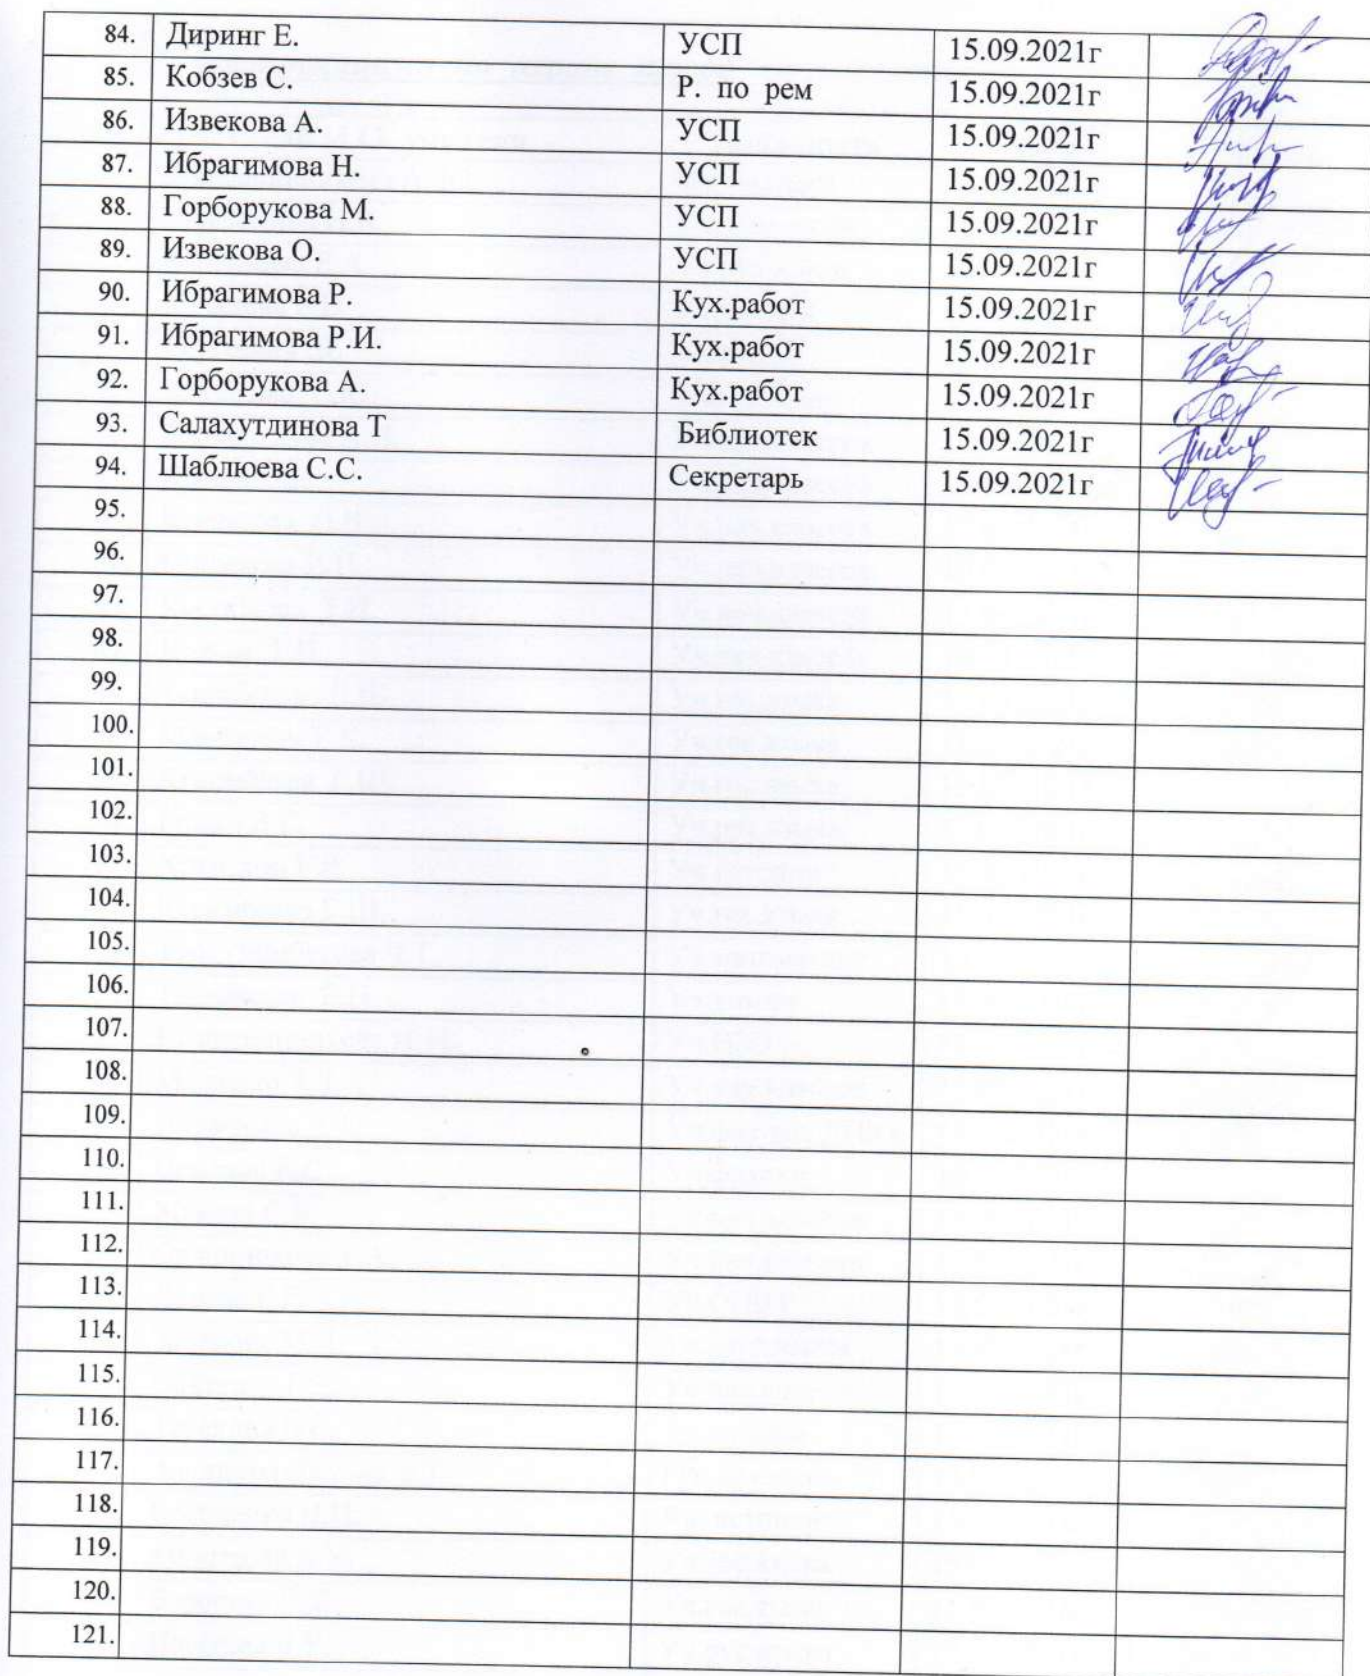 84. Диринг Е. УСП 15.09.2021г
85. Кобзев С. Р. по рем 15.09.2021г
86. Извекова А. УСП 15.09.2021г
87. Ибрагимова Н. УСП 15.09.2021г
88. Горборукова М. УСП 15.09.2021г
89. Извекова О. УСП 15.09.2021г
90. Ибрагимова Р. Кух.работ 15.09.2021г
91. Ибрагимова Р.И. Кух.работ 15.09.2021г
92. Горборукова А. Кух.работ 15.09.2021г
93. Салахутдинова Т Библиотек 15.09.2021г
94. Шаблюева С.С. Секретарь 15.09.2021г
95.
96.
97.
98.
99.
100.
101.
102.
103.
104.
105.
106.
107.
108.
109.
110.
111.
112.
113.
114.
115.
116.
117.
118.
119.
120.
121.